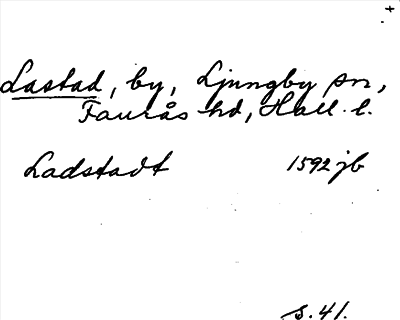 Lastad, by, Ljungby sn,
Faurås hd, Hall. l.
Ladstadt 1592 jb
s. 41.